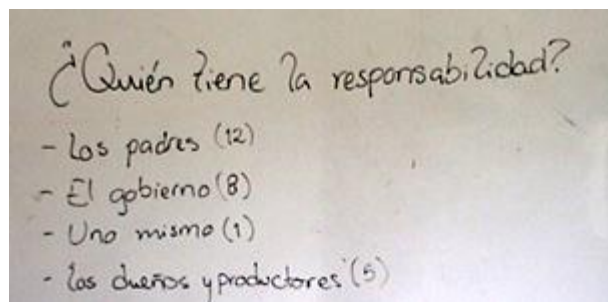 ¿Quién tiene la responsabilidad?
- Los padres (12)
- El gobierno (8)
- Uno mismo (1)
- Los dueños y productores (5)